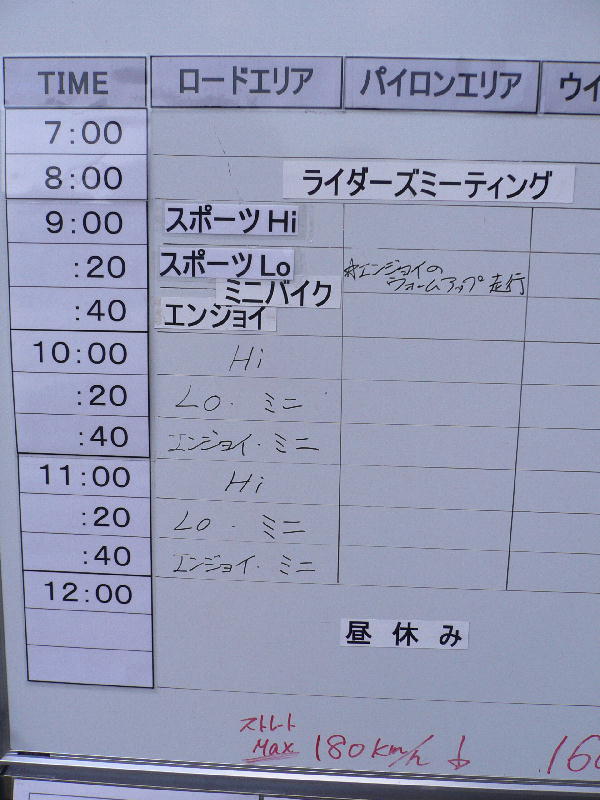 TIME ロードエリア パイロンエリア ウイ
7:00
8:00 ライダーズミーティング
9:00 スポーツHi
:20 スポーツLo ＊エンジョイの
ウォームアップ走行
ミニバイク
:40 エンジョイ
10:00 Hi
:20 Lo・ミニ
:40 エンジョイ・ミニ
11:00 Hi
:20 Lo・ミニ
:40 エンジョイ・ミニ
12:00
昼休み
ストレート
Max 180km/h ↓ 160